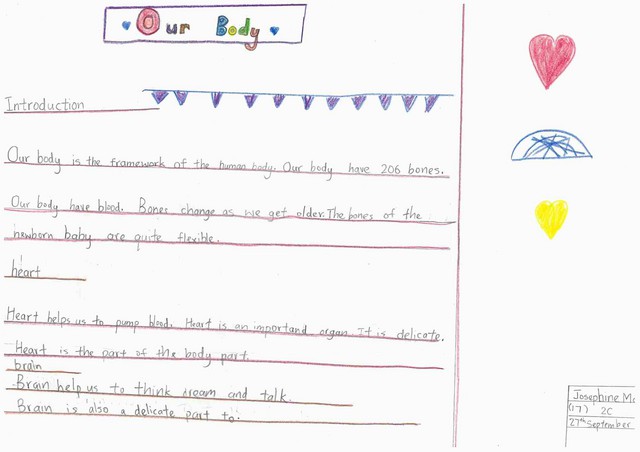 Our Body
Introduction
Our body is the framework of the human body. Our body have 206 bones.
Our body have blood. Bones change as we get older. The bones of the
newborn baby are quite flexible.
heart
Heart helps us to pump blood. Heart is an importand organ. It is delicate.
Heart is the part of the body part.
brain
Brain help us to think and talk.
Brain is also a delicate part to.
Josephine
(17) 2C
27th September